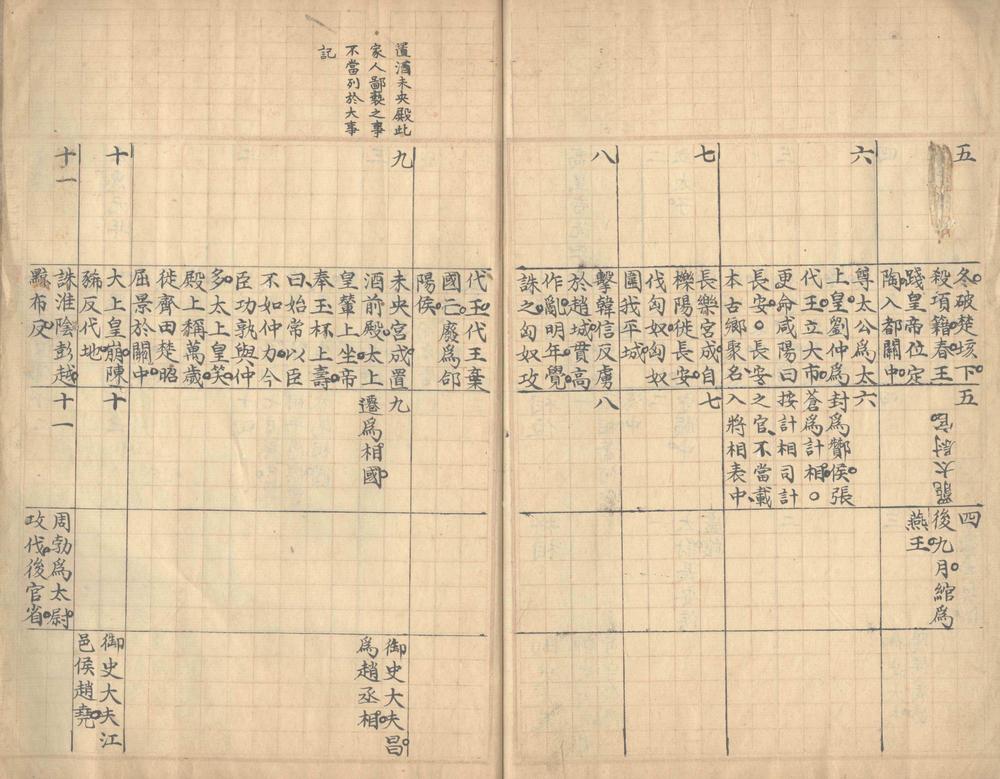 五
冬破楚垓下
殺項籍春王
踐皇帝位定
陶入都關中
五
罷太尉官
四
後九月綰為
燕王
六
尊太公為太
上皇劉仲為
代王立大市
更命咸陽曰
長安長安
本古鄉聚名
六
封為酇侯張
蒼為計相
按計相司計
之官不當載
入將相表中
七
長樂宮成自
櫟陽徙長安
伐匈奴匈奴
圍我平城
七
八
擊韓信反虜
於趙城貫高
作亂明年覺
誅之匈奴攻
八
代王代王棄
國亡廢為郃
陽侯
置酒未央殿此
家人鄙褻之事
不當列於大事
記
九
未央宮成置
酒前殿太上
皇輦上坐帝
奉玉杯上壽
曰始常以臣
不如仲力今
臣功孰與仲
多太上皇笑
殿上稱萬歲
徙齊田楚昭
屈景於關中
九
遷為相國
御史大夫昌
為趙丞相
十
大上皇崩陳
豨反代地
十
御史大夫江
邑侯趙堯
十一
誅淮陰彭越
黥布反
十一
周勃為太尉
攻代後官省